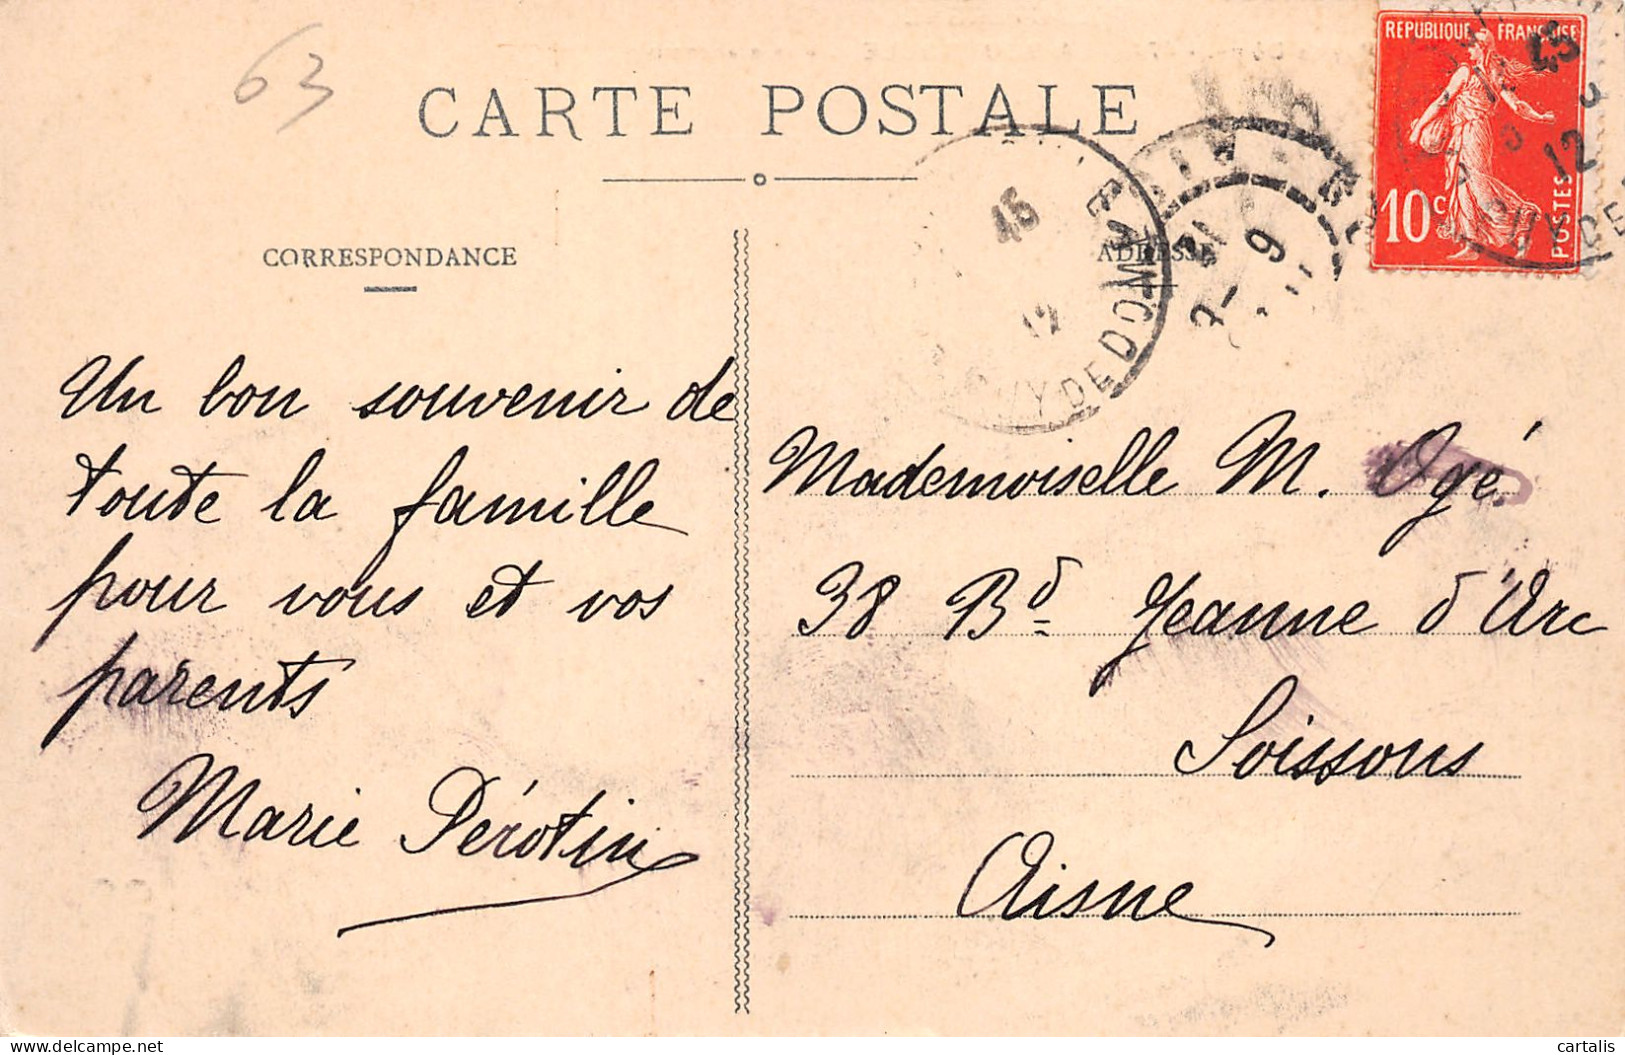 63
CARTE POSTALE
RÉPUBLIQUE FRANÇAISE
10c
POSTES
45
12
PUY DE
45
12
PUY DE DOME
9
CORRESPONDANCE
ADRESSE
Un bon souvenir de
toute la famille
pour vous et vos
parents
Marie Pérotin
Mademoiselle M. Ogé
38 Bd Jeanne d'Arc
Soissons
Aisne
cartalis